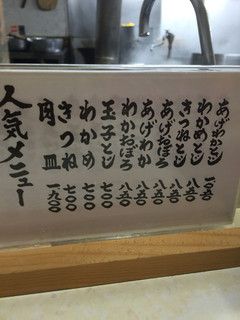 あげわかとじ
わかめとじ 八五〇
きつねとじ 八五〇
あげおぼろ 八五〇
あげわか 八五〇
わかおぼろ 八五〇
玉子とじ 七〇〇
わかめ 七〇〇
きつね 七〇〇
肉皿 一九〇〇
人気メニュー